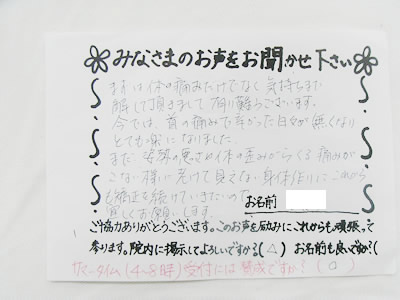 みなさまのお声をお聞かせ下さい
まずは体の痛みだけでなく気持ちまで
解して頂きまして有り難うございます。
今では、首の痛みで辛かった日々が無くなり
とても楽になりました。
まだ姿勢の悪さや体の歪みからくる痛みが
こない様に老けて見えない身体作りにこれからも
矯正を続けていきたいので
宜しくお願いします。
お名前
ご協力ありがとうございます。このお声を励みにこれからも頑張って
参ります。院内に掲示してよろしいですか?(△) お名前も良いですか?(
サマータイム(4~8時)受付には賛成ですか?(○)